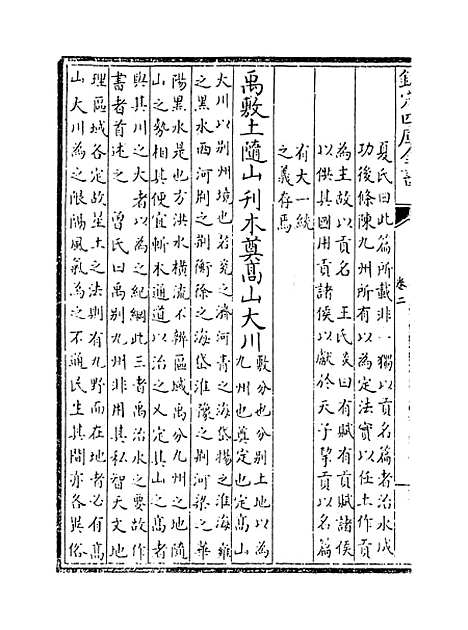 欽定四庫全書
卷二
夏氏曰此篇所載非一獨以貢名篇者治水成
功後條陳九州所有以為定法實以任土作貢
為主故以貢名 王氏炎曰有賦有貢賦諸侯
以供其國用貢諸侯以獻於天子挈貢以名篇
有大一統
之義存焉
禹敷土隨山刋木奠髙山大川
敷分也分别土地以為
九州也奠定也定髙山
大川以别州境也若兗之濟河青之海岱揚之淮海雍
之黑水西河荆之荆衡徐之海岱淮豫之荆河梁之華
陽黑水是也方洪水横流不辨區域禹分九州之地隨
山之勢相其便宜斬木通道以治之又定其山之髙者
與其川之大者以為之紀綱此三者禹治水之要故作
書者首述之 曽氏曰禹别九州非用其私智天文地
理區域各定故星土之法則有九野而在地者必有髙
山大川為之限隔風氣為之不通民生其間亦各異俗